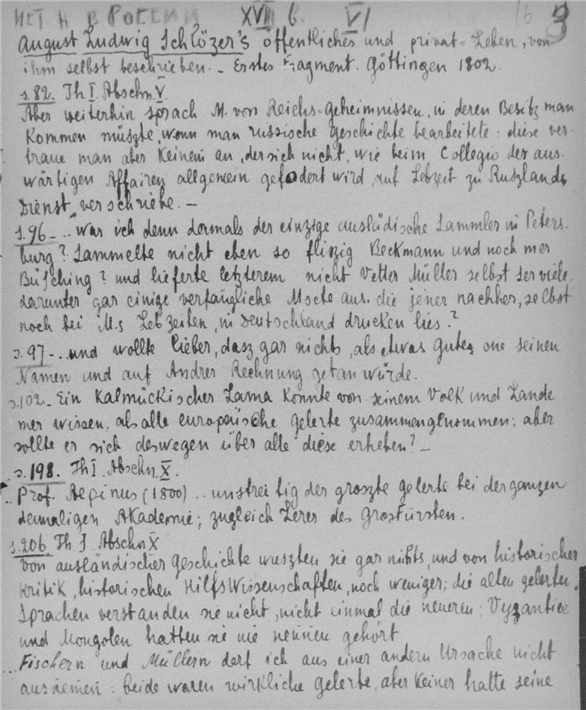 ИСТ. Н. В РОССИИ XVIII в. VI 3
August Ludwig Schlözer's öffentliches und privat-Leben, von
ihm selbst beschrieben. - Erstes Fragment. Göttingen 1802.
s. 82. Th I. Abschn. V.
Aber weiterhin sprach M. von Reichs-Geheimnissen, in deren Besitz man
kommen müszte, wenn man russische Geschichte bearbeitete: diese ver-
traue man aber Keinem an, der sich nicht, wie beim Collegio der aus-
wärtigen Affairen allgemein gefodert wird, auf Lebzeit zu Ruszlands
Dienst verschriebe. -
s. 96 - .. war ich denn dermals der einzige auslädische Sammler in Peters-
burg? Sammelte nicht eben so fliszig Beckmann und noch mer
Büsching? und lieferte letzterem nicht Vetter Müller selbst ser viele
darunter gar einige verfängliche Mscte aus. die jener nachher, selbst
noch bei M.s Lebzeiten, in Deutschland drucken lies?
s. 97 - .. und wollte lieber, dasz gar nichts, als etwas Gutes one seinen
Namen und auf Andrer Rechnung getan würde.
s. 102 - Ein Kalmückischer Lama konnte von seinem Volk und Lande
mer wissen, als alle europäische gelerte zusammengenommen: aber
sollte er sich deswegen über alle diese erheben? -
s. 198. Th I. Abschn. X.
.. Prof. Aepinus (1800) .. unstreitig der groszte gelerte bei der ganzen
demaligen Akademie; zugleich Lerer des Grosfürsten.
s. 206 Th I. Abschn X
Von ausländischer Geschichte wuszten sie gar nichts, und von historischer
Kritik, historischen HilfsWissenschaften, noch weniger; die alten gelerten
Sprachen verstanden sie nicht, nicht einmal die neueren; Byzantier
und Mongolen hatten sie nie nennen gehört
.. Fischern und Müllern derf ich aus einer andern Ursache nicht
ausnemen: beide waren wirkliche gelerte, aber keiner hatte seine